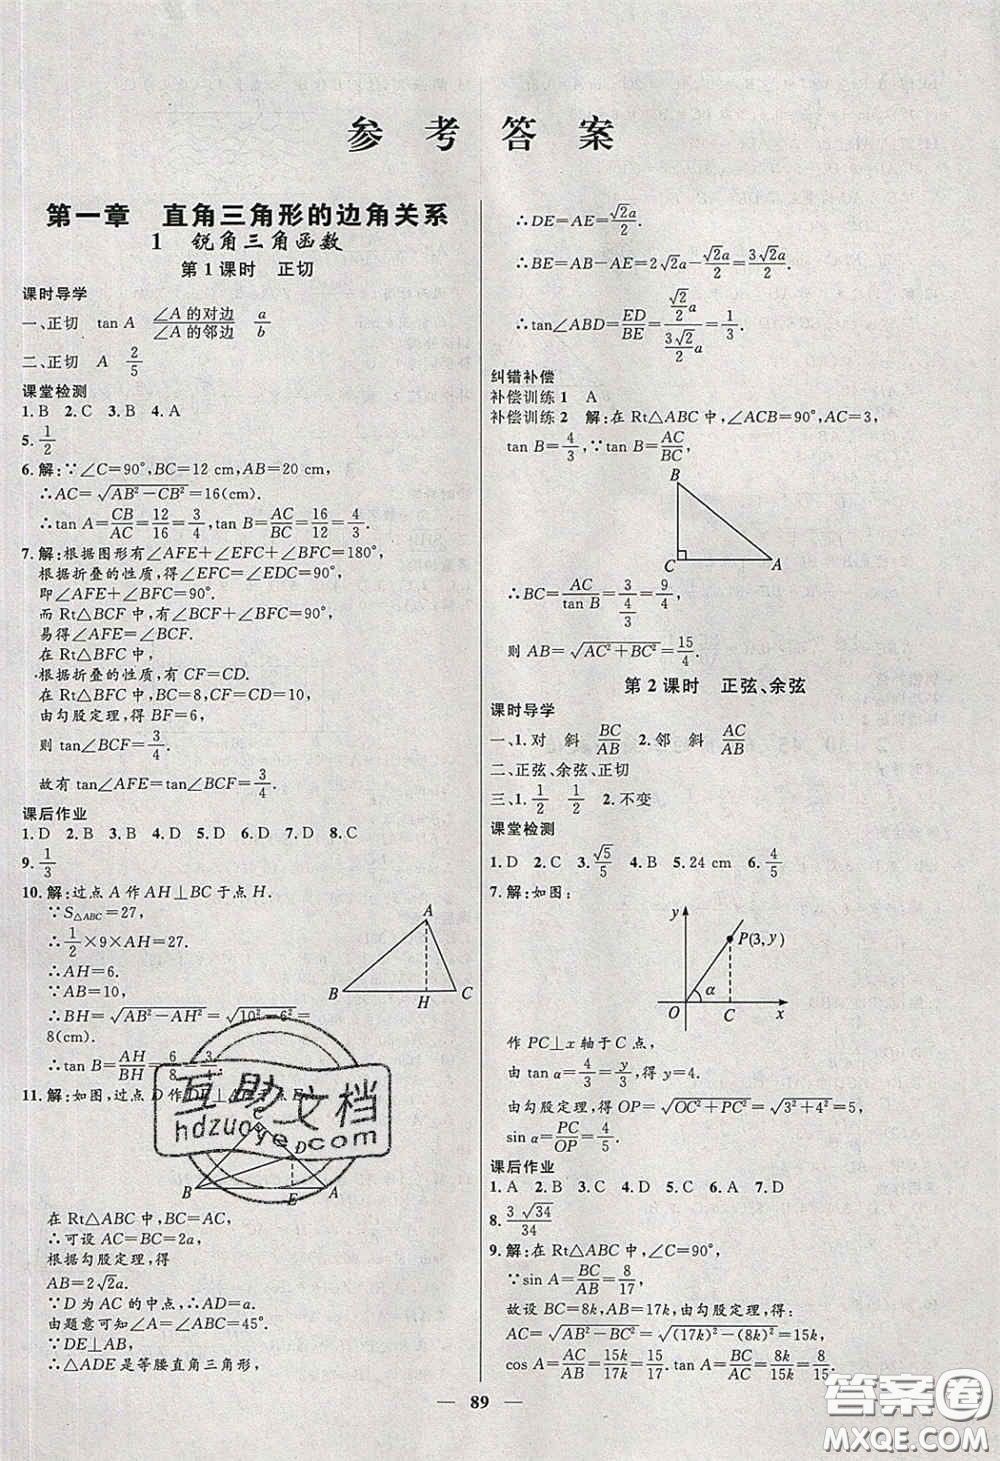 参考答案
第一章 直角三角形的边角关系
1 锐角三角函数
第1课时 正切
课时导学
一、正切 tan A ∠A的对边/∠A的邻边 a/b
二、正切 A 2/5
课堂检测
1.B 2.C 3.B 4.A
5.1/2
6.解:∵∠C=90°,BC=12 cm,AB=20 cm,
∴AC=√(AB²-CB²)=16(cm).
∴tan A=CB/AC=12/16=3/4,tan B=AC/BC=16/12=4/3.
7.解:根据图形有∠AFE+∠EFC+∠BFC=180°,
根据折叠的性质,得∠EFC=∠EDC=90°,
即∠AFE+∠BFC=90°.
而Rt△BCF中,有∠BCF+∠BFC=90°,
易得∠AFE=∠BCF.
在Rt△BFC中,
根据折叠的性质,有CF=CD.
在Rt△BFC中,BC=8,CF=CD=10,
由勾股定理,得BF=6,
则 tan∠BCF=3/4.
故有 tan∠AFE=tan∠BCF=3/4.
课后作业
1.D 2.B 3.B 4.D 5.D 6.D 7.D 8.C
9.1/3
10.解:过点A作AH⊥BC于点H.
∵S△ABC=27,
∴1/2×9×AH=27.
∴AH=6.
∵AB=10,
∴BH=√(AB²-AH²)=√(10²-6²)=
8(cm).
∴tan B=AH/BH=6/8=3/4.
A
B
H
C
11.解:如图,过点D作DE⊥AB于点E,
C
D
B
E
A
在Rt△ABC中,BC=AC,
∴可设AC=BC=2a,
根据勾股定理,得
AB=2√2a.
∵D为AC的中点,∴AD=a.
由题意可知∠A=∠ABC=45°.
∵DE⊥AB,
∴△ADE是等腰直角三角形,
∴DE=AE=√2a/2.
∴BE=AB-AE=2√2a-√2a/2=3√2a/2.
∴tan∠ABD=ED/BE=(√2/2 a)/(3√2/2 a)=1/3.
纠错补偿
补偿训练1 A
补偿训练2 解:在Rt△ABC中,∠ACB=90°,AC=3,
tan B=4/3,∵tan B=AC/BC,
B
C
A
∴BC=AC/tan B=3/(4/3)=9/4,
则 AB=√(AC²+BC²)=15/4.
第2课时 正弦、余弦
课时导学
一、1.对 斜 BC/AB 2.邻 斜 AC/AB
二、正弦、余弦、正切
三、1.1/2 1/2 2.不变
课堂检测
1.D 2.C 3.√5/5 4.B 5.24 cm 6.4/5
7.解:如图:
y
P(3,y)
α
O
C
x
作PC⊥x轴于C点,
由 tan α=4/3=y/3,得y=4.
由勾股定理,得OP=√(OC²+PC²)=√(3²+4²)=5,
sin α=PC/OP=4/5.
课后作业
1.A 2.B 3.B 4.C 5.D 6.A 7.D
8.3√34/34
9.解:在Rt△ABC中,∠C=90°,
∵sin A=BC/AB=8/17,
故设BC=8k,AB=17k,由勾股定理,得:
AC=√(AB²-BC²)=√((17k)²-(8k)²)=15k,
cos A=AC/AB=15k/17k=15/17.tan A=BC/AC=8k/15k=8/15.
— 89 —
互助文档
hdzuoye.com
答案圈
MXQE.COM